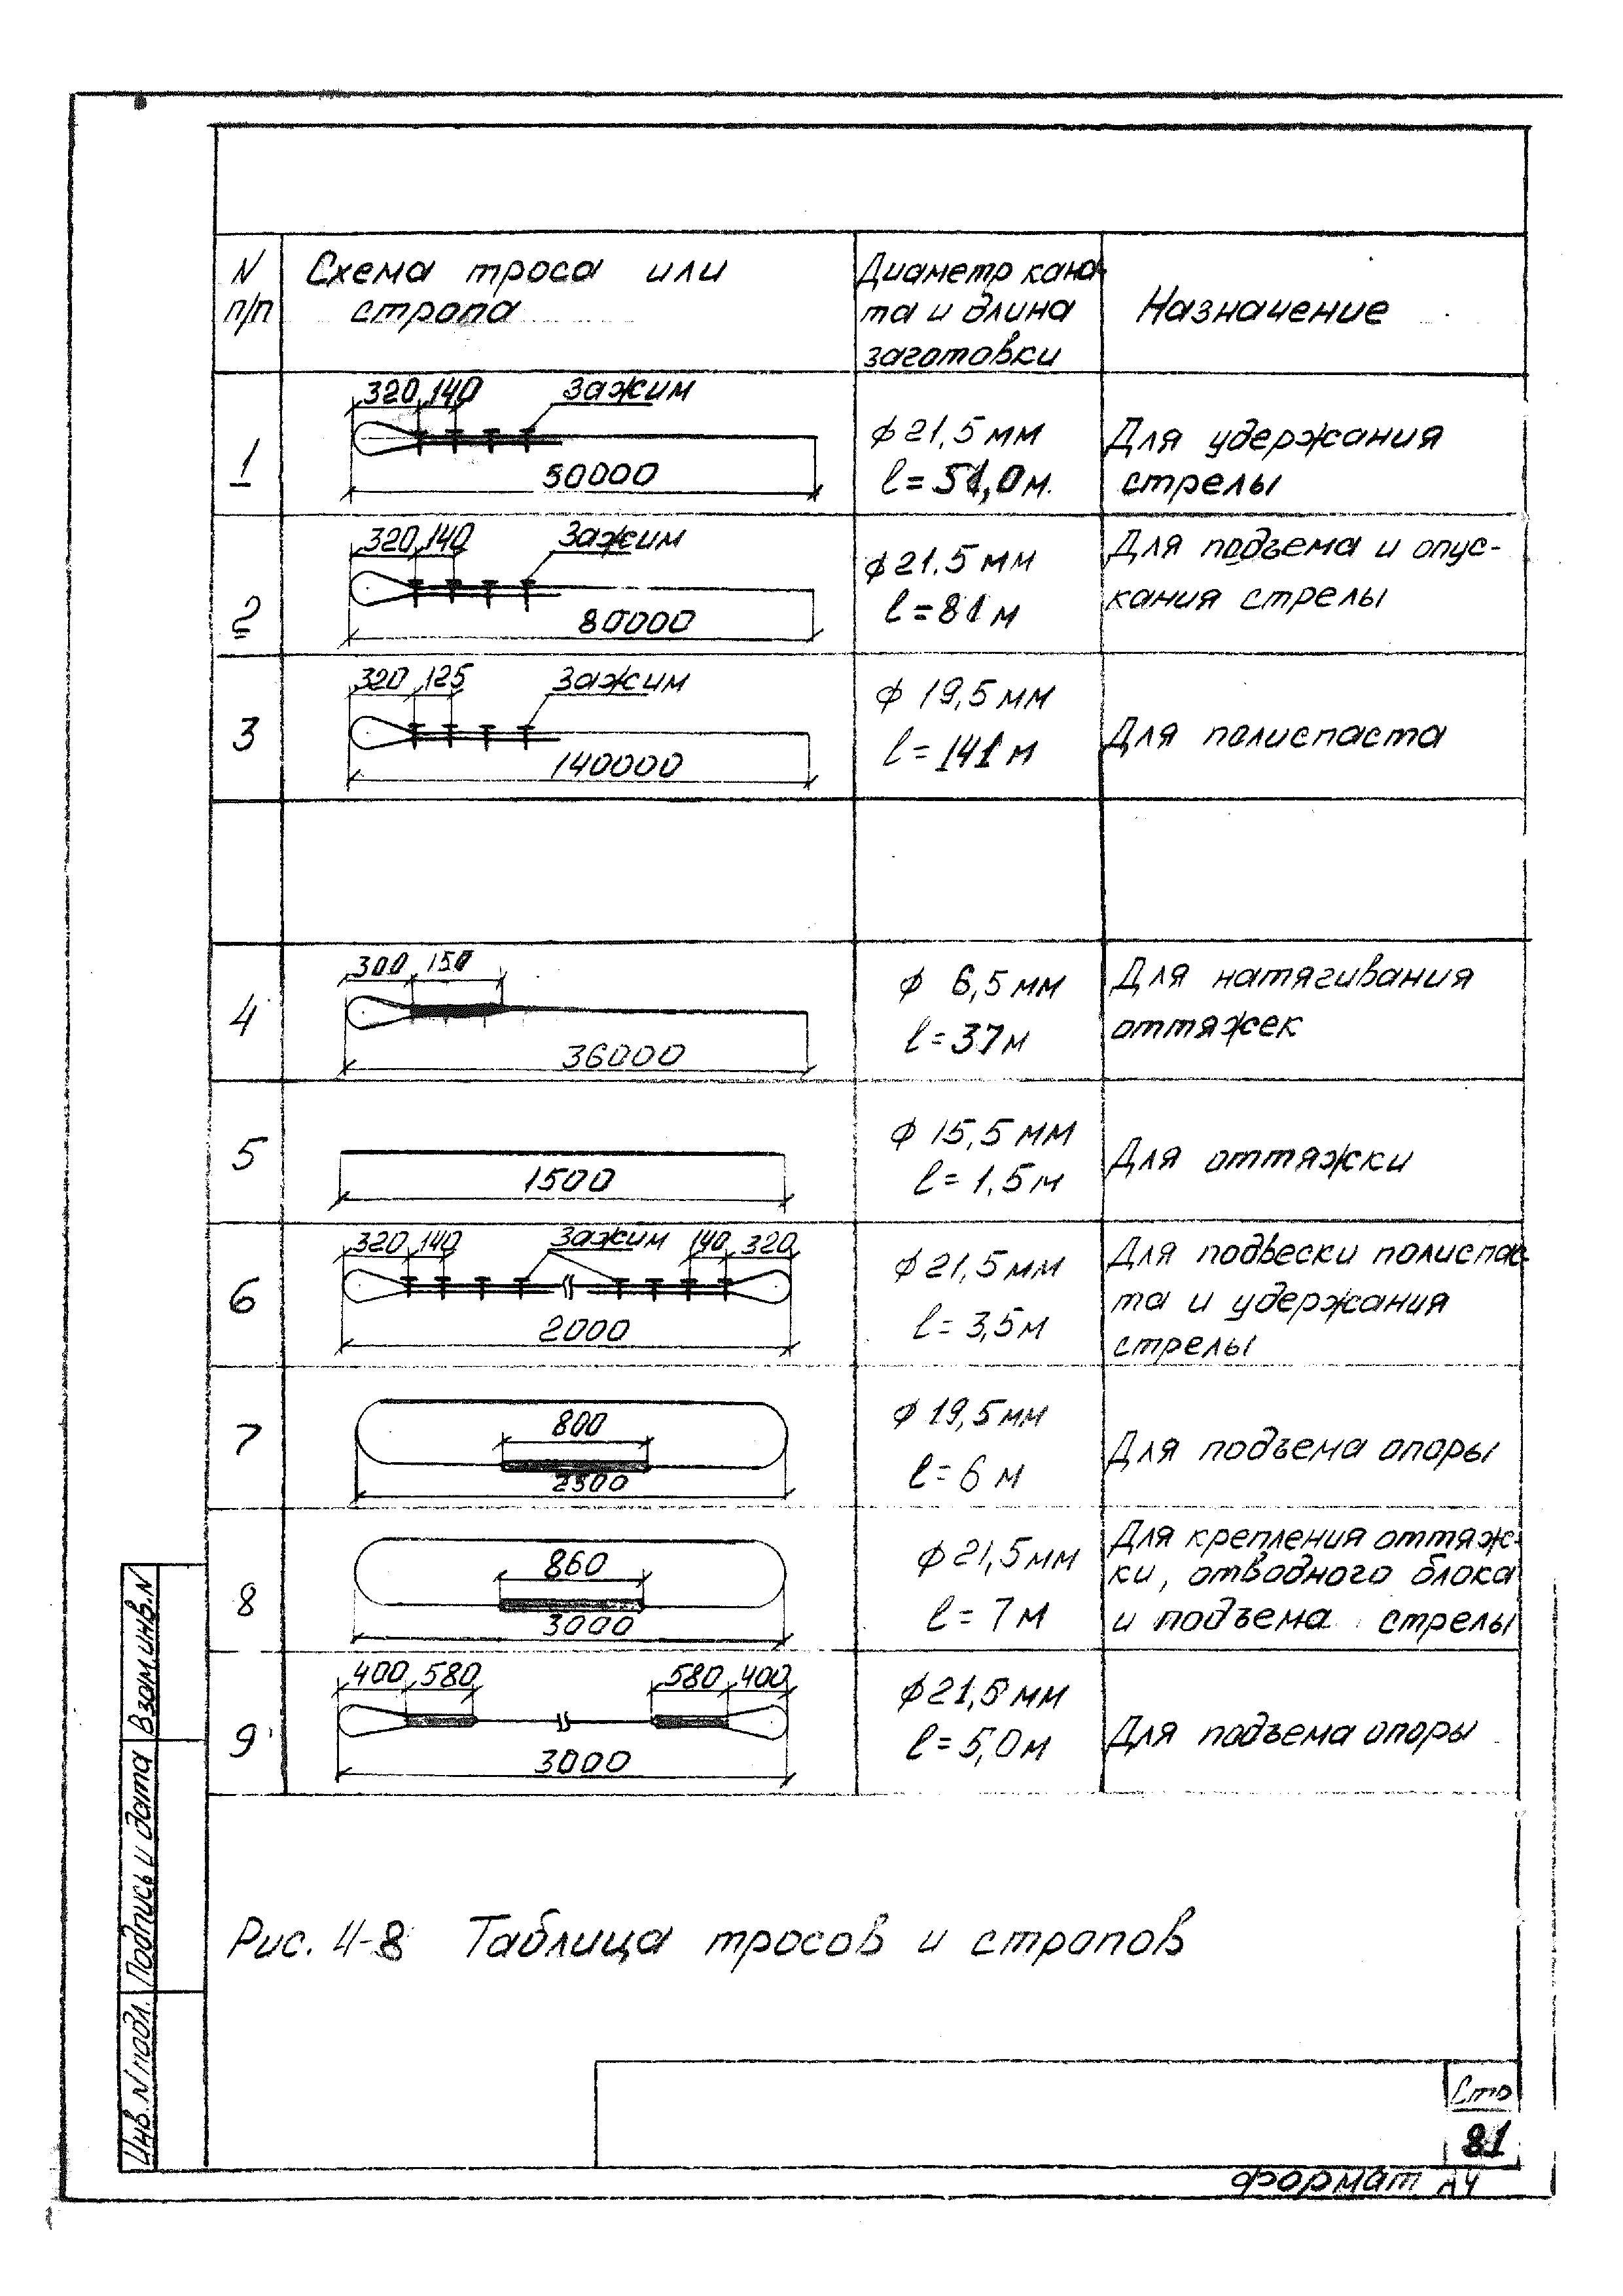 N п/п
Схема троса или стропа
Диаметр кана-
та и длина
заготовки
Назначение
320 140 Зажим
1
50000
ϕ 21,5 мм
ℓ = 51,0 м.
Для удержания
стрелы
320 140 Зажим
2
80000
ϕ 21.5 мм
ℓ = 81 м
Для подъема и опус-
кания стрелы
320 125 Зажим
3
140000
ϕ 19,5 мм
ℓ = 141 м
Для полиспаста
300 150
4
36000
ϕ 6,5 мм
ℓ = 37 м
Для натягивания
оттяжек
5
1500
ϕ 15,5 мм
ℓ = 1,5 м
Для оттяжки
320 140 Зажим 140 320
6
2000
ϕ 21,5 мм
ℓ = 3,5 м
Для подвески полиспас-
та и удержания
стрелы
7
800
2300
ϕ 19,5 мм
ℓ = 6 м
Для подъема опоры
8
860
3000
ϕ 21,5 мм
ℓ = 7 м
Для крепления оттяж-
ки, отводного блока
и подъема стрелы
400 580 580 400
9
3000
ϕ 21,5 мм
ℓ = 5,0 м
Для подъема опоры
Рис. 4-8 Таблица тросов и стропов
Взам.инв.N
Подпись и дата
Инв.N подл.
81
формат А4